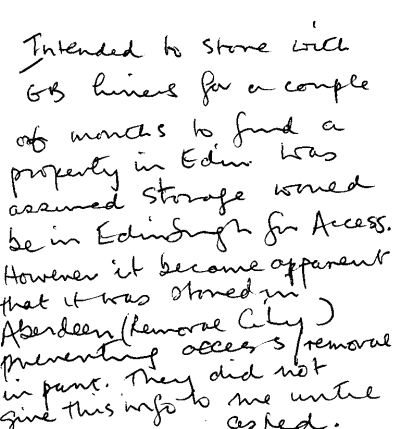 Intended to store with
GB liners for a couple
of months to find a
property in Edin. Was
assumed storage would
be in Edinburgh for Access.
However it became apparent
that it was stored in
Aberdeen (Removal City)
preventing access/removal
in part. They did not
give this info to me until
asked.